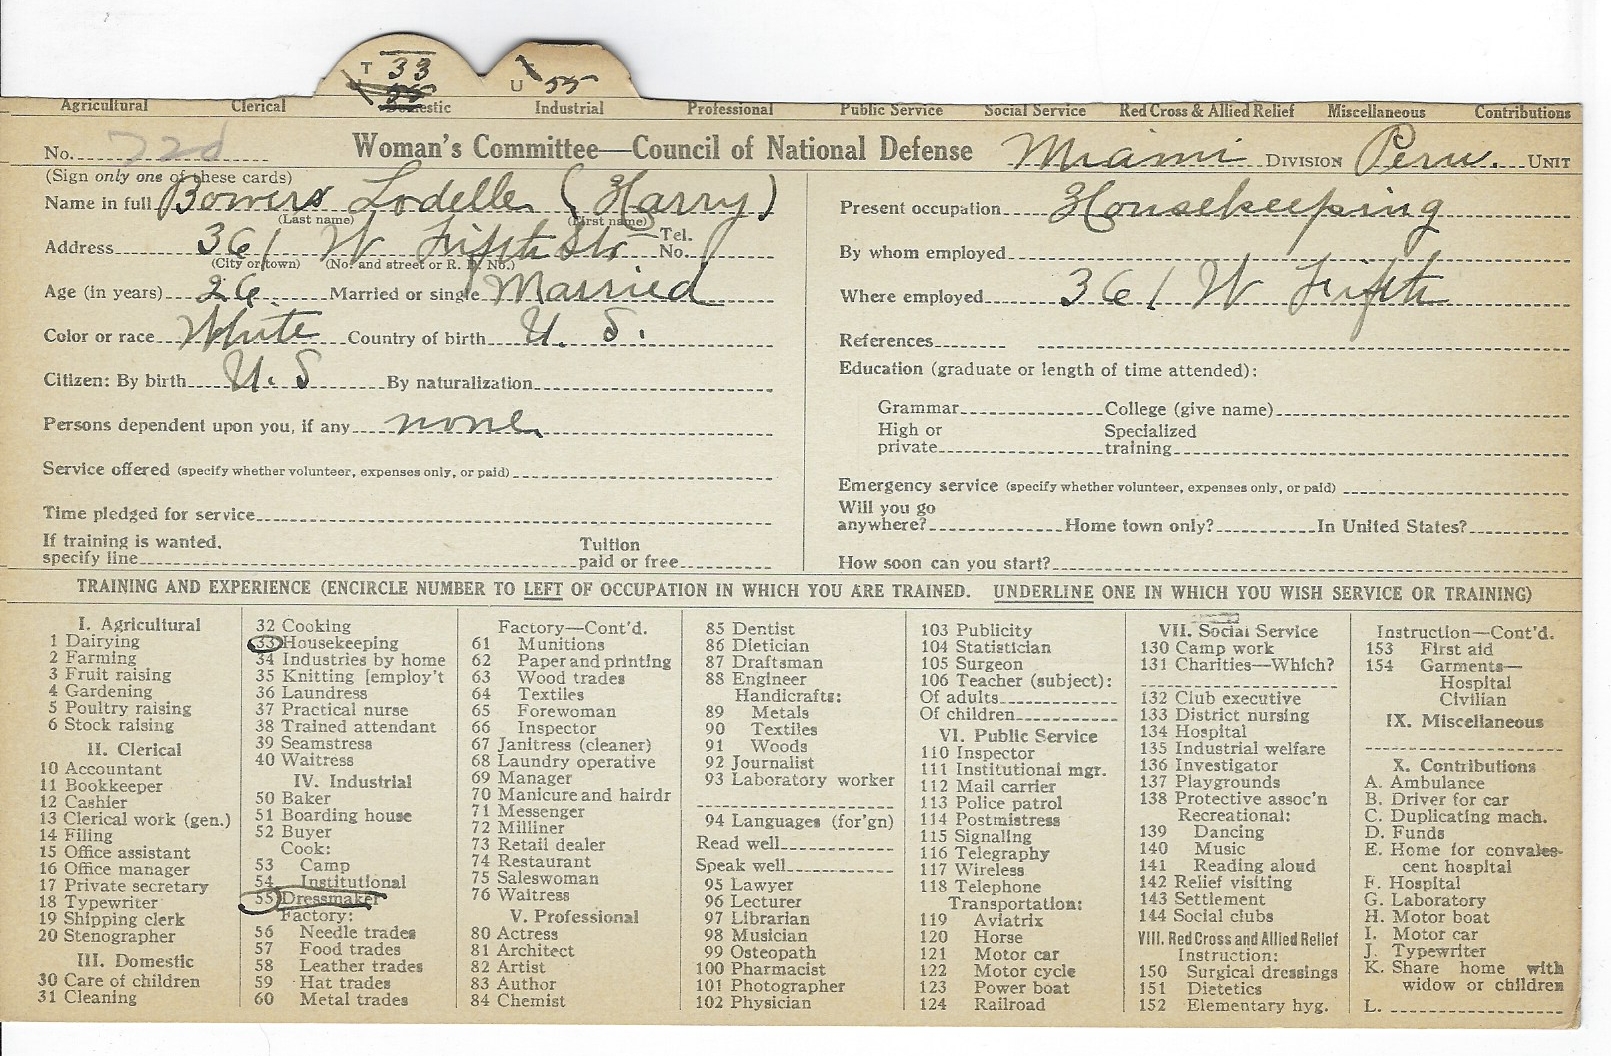 T 33
U 55
Agricultural Clerical Domestic Industrial Professional Public Service Social Service Red Cross & Allied Relief Miscellaneous Contributions
No. 72d Woman's Committee—Council of National Defense Miami DIVISION Peru. UNIT
(Sign only one of these cards)
Name in full Bowers Lodelle (Harry)
(Last name) (First name)
Address 361 W Fifth Str Tel. No.
(City or town) (No. and street or R. F. No.)
Age (in years) 26. Married or single Married
Color or race White Country of birth U. S.
Citizen: By birth U. S By naturalization
Persons dependent upon you, if any none
Service offered (specify whether volunteer, expenses only, or paid)
Time pledged for service
If training is wanted, specify line Tuition paid or free
Present occupation Housekeeping
By whom employed
Where employed 361 W Fifth
References
Education (graduate or length of time attended):
Grammar College (give name)
High or private Specialized training
Emergency service (specify whether volunteer, expenses only, or paid)
Will you go anywhere? Home town only? In United States?
How soon can you start?
TRAINING AND EXPERIENCE (ENCIRCLE NUMBER TO LEFT OF OCCUPATION IN WHICH YOU ARE TRAINED. UNDERLINE ONE IN WHICH YOU WISH SERVICE OR TRAINING)
I. Agricultural
1 Dairying
2 Farming
3 Fruit raising
4 Gardening
5 Poultry raising
6 Stock raising
II. Clerical
10 Accountant
11 Bookkeeper
12 Cashier
13 Clerical work (gen.)
14 Filing
15 Office assistant
16 Office manager
17 Private secretary
18 Typewriter
19 Shipping clerk
20 Stenographer
III. Domestic
30 Care of children
31 Cleaning
32 Cooking
33 Housekeeping
34 Industries by home
35 Knitting [employ't
36 Laundress
37 Practical nurse
38 Trained attendant
39 Seamstress
40 Waitress
IV. Industrial
50 Baker
51 Boarding house
52 Buyer
Cook:
53 Camp
54 Institutional
55 Dressmaker
Factory:
56 Needle trades
57 Food trades
58 Leather trades
59 Hat trades
60 Metal trades
Factory—Cont'd.
61 Munitions
62 Paper and printing
63 Wood trades
64 Textiles
65 Forewoman
66 Inspector
67 Janitress (cleaner)
68 Laundry operative
69 Manager
70 Manicure and hairdr
71 Messenger
72 Milliner
73 Retail dealer
74 Restaurant
75 Saleswoman
76 Waitress
V. Professional
80 Actress
81 Architect
82 Artist
83 Author
84 Chemist
85 Dentist
86 Dietician
87 Draftsman
88 Engineer
Handicrafts:
89 Metals
90 Textiles
91 Woods
92 Journalist
93 Laboratory worker
94 Languages (for'gn)
Read well
Speak well
95 Lawyer
96 Lecturer
97 Librarian
98 Musician
99 Osteopath
100 Pharmacist
101 Photographer
102 Physician
103 Publicity
104 Statistician
105 Surgeon
106 Teacher (subject):
Of adults
Of children
VI. Public Service
110 Inspector
111 Institutional mgr.
112 Mail carrier
113 Police patrol
114 Postmistress
115 Signaling
116 Telegraphy
117 Wireless
118 Telephone
Transportation:
119 Aviatrix
120 Horse
121 Motor car
122 Motor cycle
123 Power boat
124 Railroad
VII. Social Service
130 Camp work
131 Charities—Which?
132 Club executive
133 District nursing
134 Hospital
135 Industrial welfare
136 Investigator
137 Playgrounds
138 Protective assoc'n
Recreational:
139 Dancing
140 Music
141 Reading aloud
142 Relief visiting
143 Settlement
144 Social clubs
VIII. Red Cross and Allied Relief
Instruction:
150 Surgical dressings
151 Dietetics
152 Elementary hyg.
Instruction—Cont'd.
153 First aid
154 Garments—
Hospital
Civilian
IX. Miscellaneous
X. Contributions
A. Ambulance
B. Driver for car
C. Duplicating mach.
D. Funds
E. Home for convales-
cent hospital
F. Hospital
G. Laboratory
H. Motor boat
I. Motor car
J. Typewriter
K. Share home with
widow or children
L.